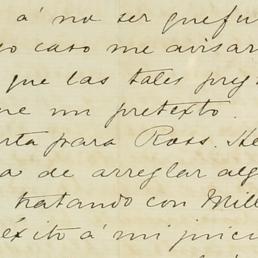 á no ser que fu
o caso me avisar
que las tales preg
ne un pretexto.
rta para Ross. He
a de arreglar alg
tratando con Mill
éxito á mi juici